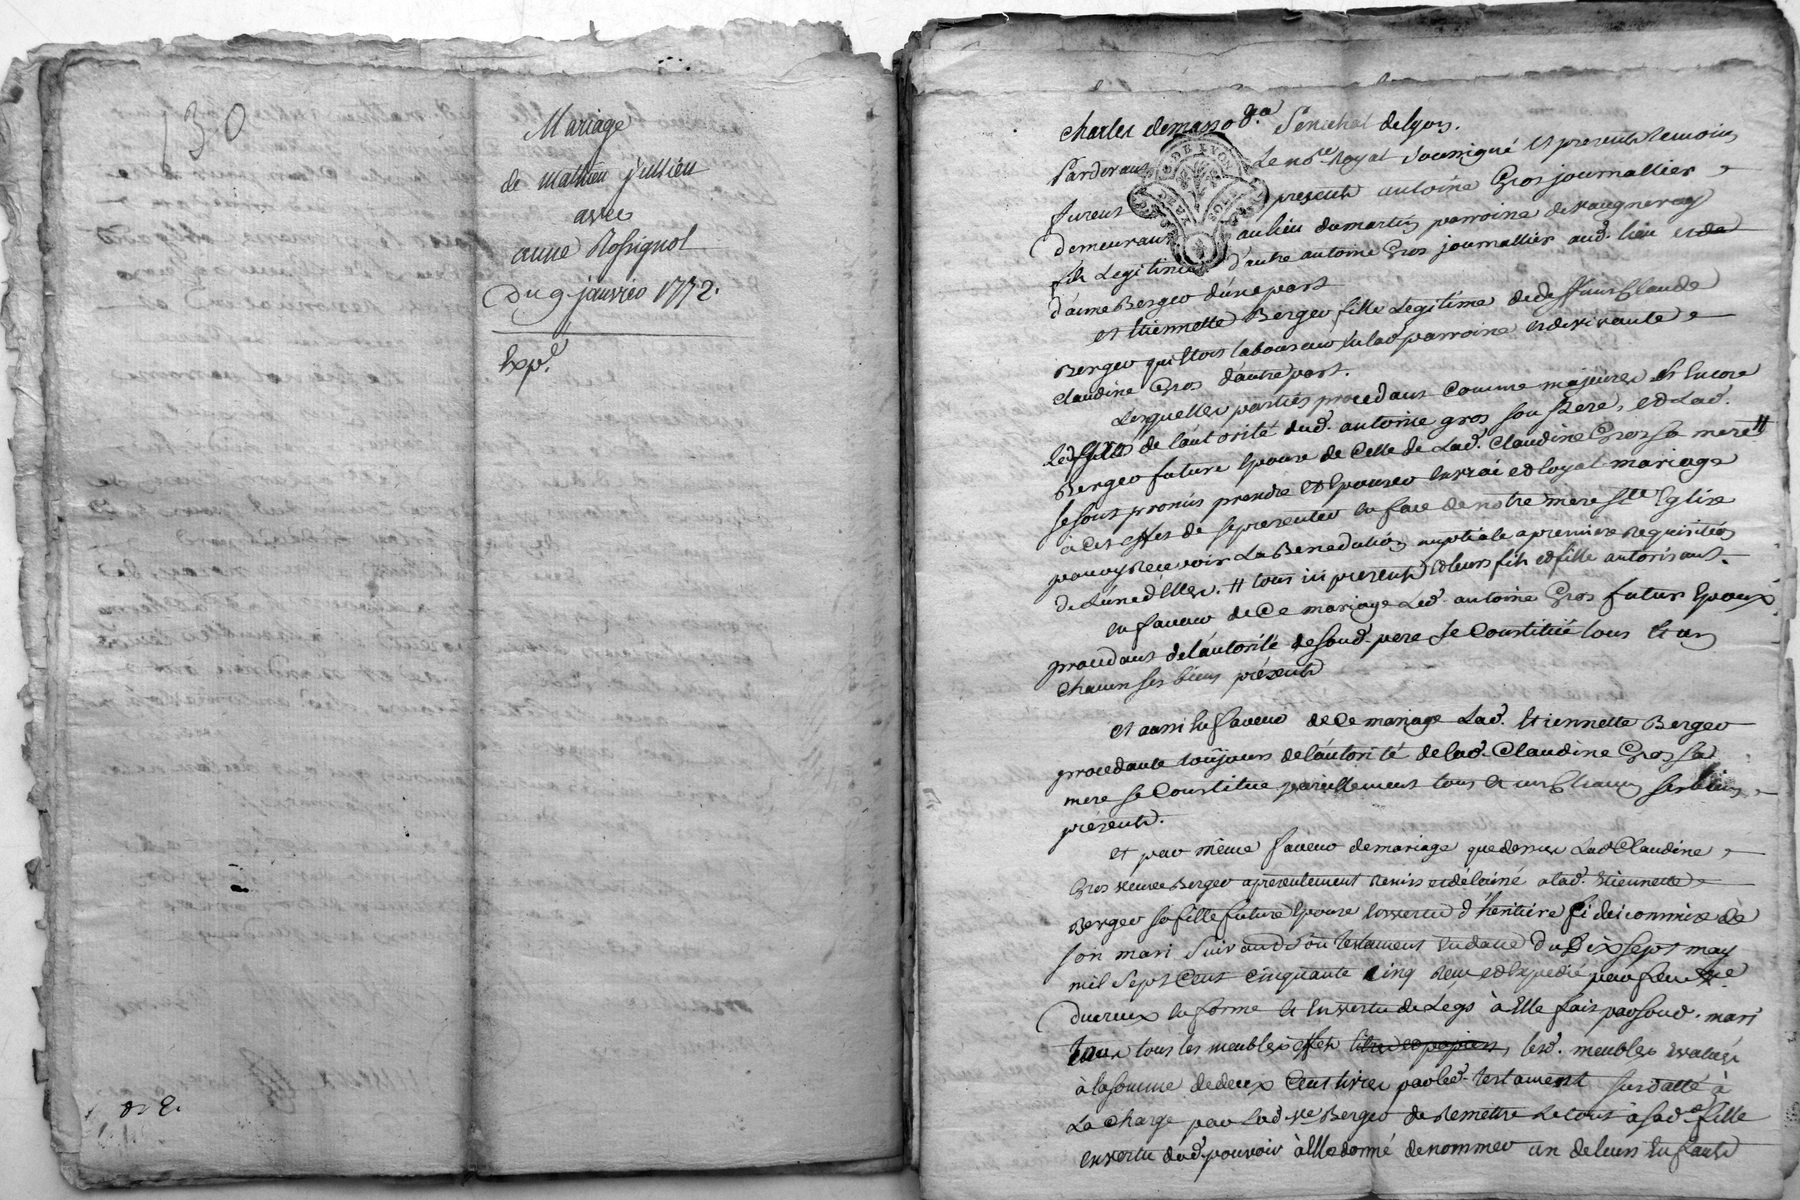 130
Mariage
de mathieu jullien
avec
anne Rossignol
Du 9 janvier 1772.
Exp.é
Charles demasso &a Senechal de lyon.
Pardevant Le no.re Royal soussigné et presents temoins
furent presents antoine Gros journallier
demeurant au lieu du martin parroisse de vaugneray
fils Legitime d'autre antoine Gros journallier aud. lieu et de
d'aime Berger d'une part
et Etiennette Berger fille Legitime de deffunt Claude
Berger qui etoit laboureur en lad parroisse et de vivante
Claudine Gros d'autre part.
Lesquelles parties procedant Comme majeures et Encore
Led. Gros de l'autorité dud. antoine gros son Pere, et Lad.
Berger future Epouse de Celle de Lad. Claudine Gros sa mere #
se sont promis prendre et Epouser en vrai et loyal mariage
à cet effet de se presenter en face de notre mere s.te Eglise
pour y Recevoir La Benediction nuptiale a premiere Requisition
de L'une d'Elles. # tous ici presents et leurs fils et fille autorisant.
En faveur de Ce mariage Led. antoine Gros futur Epoux
procedant de l'autorité de sond. pere se Constitue tous et un
chacun ses biens présents
et aussi En faveur de Ce mariage Lad. Etiennette Berger
procedante toujours de l'autorité de lad. Claudine Gros sa
mere se Constitue pareillement tous et un Chacun ses biens
présents.
et par même faveur de mariage que dessus Lad Claudine
Gros veuve Berger a presentement Remis et délaissé a lad. Etiennette
Berger sa fille future Epouse En vertu d'héritiere fideicommise de
son mari suivant son testament En datte du Dix sept may
mil sept Cent Cinquante Cinq Reçu et Expedié par feu me
Ducreux En forme et En vertu de Legs à Elle fait par sond. mari
tous les meubles effets titres et papiers, lesd. meubles Evalués
à la somme de deux Cent livres par led. testament susdatté à
La Charge par Lad. v.e Berger de Remettre Le tout à sad. fille
en vertu dud. pouvoir à Elle donné de nommer un de leurs Enfants